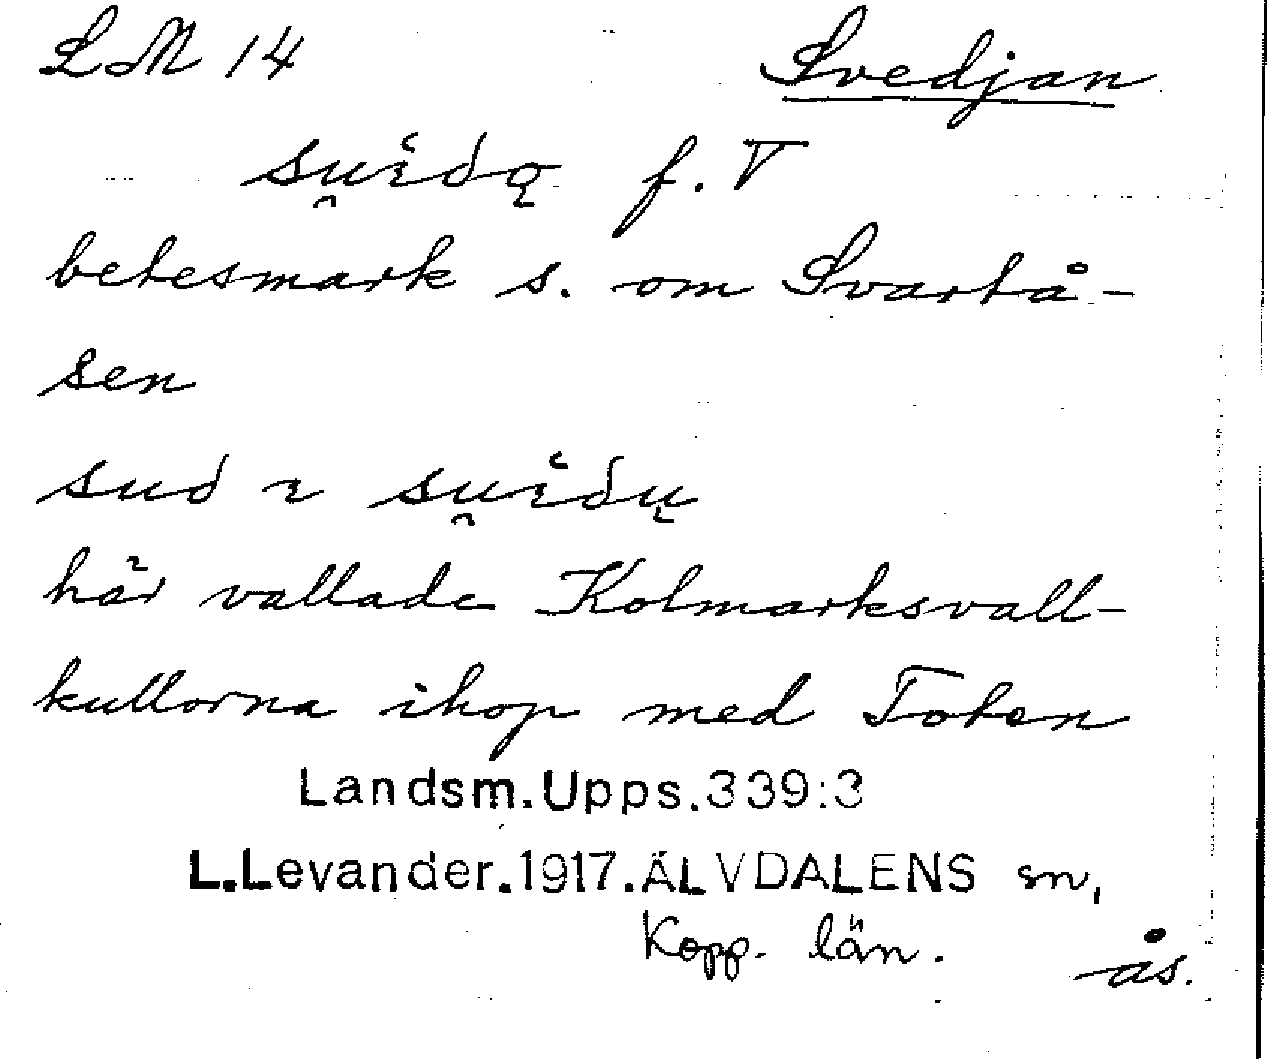 LM 14 Svedjan
su̯iðǫ f. T
betesmark s. om Svartå-
sen
suð i su̯iðų
här vallade Kolmarksvall-
kullorna ihop med Toten
Landsm.Upps.339:3
L.Levander.1917.ÄLVDALENS sn,
Kopp. län.
ås.